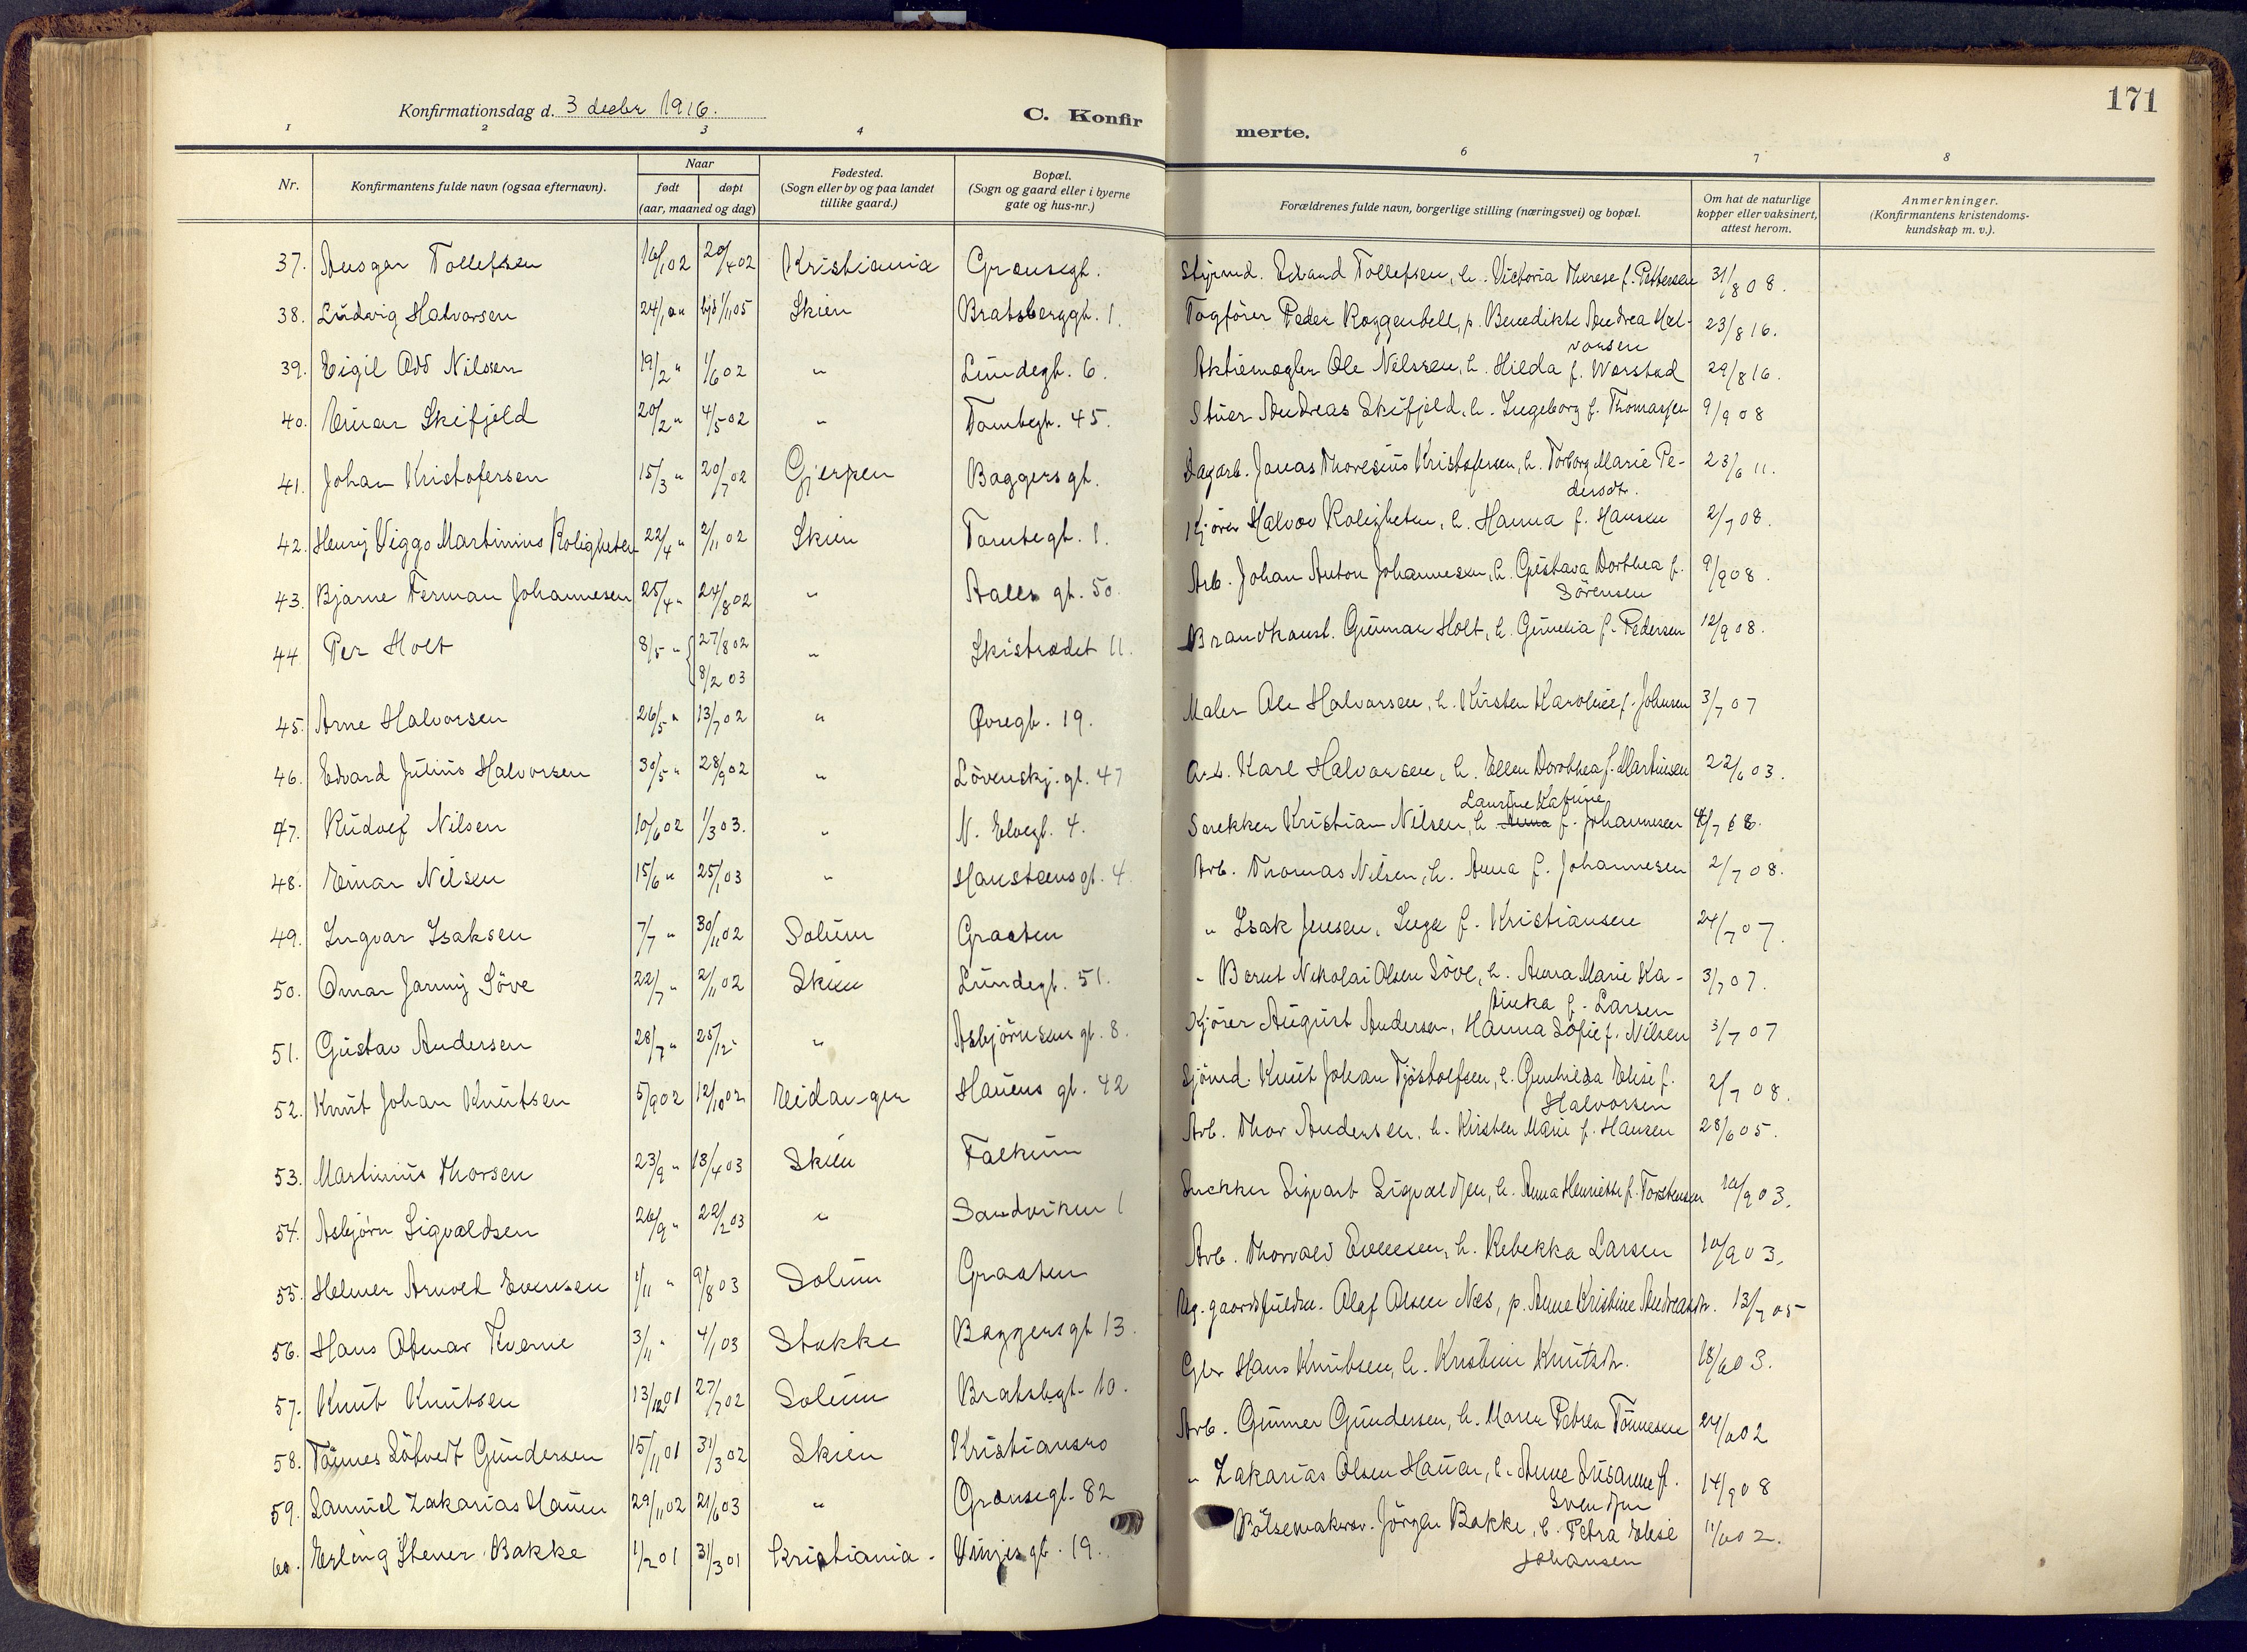 171
Konfirmationsdag d. 3 decbr 1916.
C. Konfirmerte.
1 2 3 4 6 7 8
Nr. Konfirmantens fulde navn (ogsaa efternavn). Naar født døpt (aar, maaned og dag) Fødested. (Sogn eller by og paa landet tillike gaard.) Bopæl. (Sogn og gaard eller i byerne gate og hus-nr.) Forældrenes fulde navn, borgerlige stilling (næringsvei) og bopæl. Om hat de naturlige kopper eller vaksinert, attest herom. Anmerkninger. (Konfirmantens kristendoms-kundskap m. v.).
37. Ansgar Tollefsen 16/1 02 20/4 02 Kristiania Grænsegt. Styrmd. Edvand Tollefsen, h. Victoria Therese f. Pettersen 31/8 08.
38. Ludvig Halvorsen 24/1 02 hjd 1/1 05 Skien Bratsberggt. 1. Togfører Peder Roggenbell, p. Benedikte Andrea Hal-
vorsen 23/8 16.
39. Eigil Odd Nilssen 19/2 " 1/6 02 " Lundegt. 6. Aktiemægler Ole Nilssen, h. Hilda f. Worstad 29/8 16.
40. Einar Skifjeld 20/2 " 4/5 02 " Tomtegt. 45. Stuer Andreas Skifjeld, h. Ingeborg f. Thomassen 9/9 08
41. Johan Kristofersen 15/3 " 20/7 02 Gjerpen Baggersgt. Dagarb. Jonas Thoresius Kristofersen, h. Torborg Marie Pe-
dersdt. 23/6 11.
42. Henry Viggo Martinius Roligheten 22/4 " 2/11 02 Skien Tomtegt. 1. Kjører Halvor Roligheten, h. Hanna f. Hansen 2/7 08.
43. Bjarne Ferman Johannesen 25/4 " 24/8 02 " Aalls gt. 50 Arb. Johan Anton Johannesen, h. Gustava Dorthea f.
Sörensen 9/9 08.
44 Per Holt 8/5 " { 27/8 02 " Skistrædet 11. Brandkonst. Gunnar Holt, h. Gunelia f. Pedersen 12/9 08.
8/2 03
45. Arne Halvorsen 26/5 " 13/7 02 " Øvregt. 19. Maler Ole Halvorsen, h. Kirsten Karoline f. Johnsen 3/7 07
46. Edvard Julius Halvorsen 30/5 " 28/9 02 " Lövenskj. gt. 47 Arb. Karl Halvorsen, h. Ellen Dorothea f. Martinsen 22/6 03.
Laurine Katrine
47. Rudolf Nilsen 10/6 02 1/3 03. " N. Elvegt. 4. Snekker Kristian Nilsen, h. Anna f. Johannesen
48. Einar Nilsen 15/6 " 25/1 03 " Hansteensgt. 4 Arb. Thomas Nilsen, h. Anna f. Johannesen 2/7 08.
49. Ingvar Isaksen 7/7 " 30/11 02 Solum Graaten " Isak Jensen, Inga f. Kristiansen 24/7 07.
50. Omar Jarmy Söve 22/7 " 2/11 02 Skien Lundegt. 51. " Bernt Nikolai Olsen Söve, h. Anna Marie Ka-
tinka f. Larsen 3/7 07.
51. Gustav Andersen 28/7 " 25/12 " " Asbjörnsens gt. 8. Kjörer August Andersen, Hanna Sofie f. Nilsen 3/7 07
52. Knut Johan Knutsen 5/9 02 12/10 02 Eidanger Hauens gt. 42 Sjömd. Knut Johan Tjöstolfsen, e. Gunhilda Elise f.
Halvorsen 2/7 08.
53. Martinius Thorsen 23/9 " 13/4 03 Skien Falkum Arb. Thor Andersen, h. Kirsten Marie f. Hansen 28/6 05.
54. Asbjörn Sigvaldsen 26/9 " 22/2 03 " Sandviken 1 Snekker Sigvart Sigvaldsen, h. Anna Henriette f. Torstensen 10/9 03.
55. Helmer Arnold Evensen 1/11 " 9/8 03 Solum Graaten Arb. Thorvald Evensen, h. Rebekka Larsen 10/9 03.
56. Hans Otmar Kverne 3/11 " 4/1 03 Stokke Baggersgt 13. Ug. gaardsfuldm. Olaf Olsen Næs, p. Anne Kristine Andreasdt. 13/7 05
57. Knut Knutsen 13/12 01 27/7 02 Solum Bratsbgt. 10. Hans Knutsen, h. Kristine Knutsdt. 18/6 03.
58. Tönnes Sölvedt Gundersen 15/11 01 31/3 02 Skien Kristiansro Arb. Gunner Gundersen, h. Maren Petrea Tönnesen 24/6 02
59. Samuel Zakarias Hauen 29/11 02 21/6 03 " Grænsegt. 82 " Zakarias Olsen Hauen, h. Anne Susanne f.
Svendsen 14/9 08
60. Erling Stener Bakke 1/2 01 31/3 01 Kristiania. Vinjes gt. 19. Pölsemakersv. Jörgen Bakke, h. Petra Elise
Johansen 11/6 02.